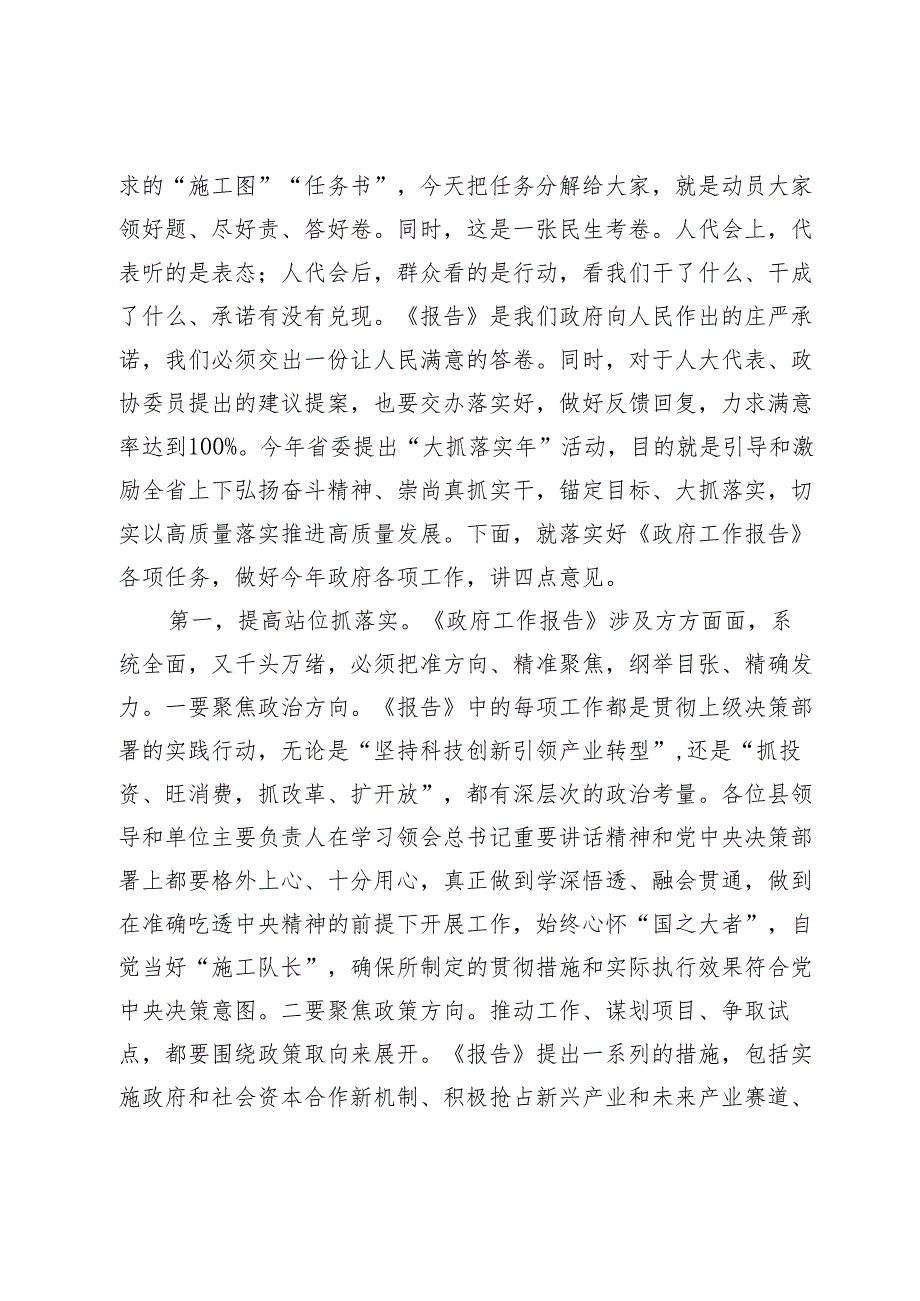 求的“施工图”“任务书”，今天把任务分解给大家，就是动员大家
领好题、尽好责、答好卷。同时，这是一张民生考卷。人代会上，代
表听的是表态；人代会后，群众看的是行动，看我们干了什么、干成
了什么、承诺有没有兑现。《报告》是我们政府向人民作出的庄严承
诺，我们必须交出一份让人民满意的答卷。同时，对于人大代表、政
协委员提出的建议提案，也要交办落实好，做好反馈回复，力求满意
率达到100%。今年省委提出“大抓落实年”活动，目的就是引导和激
励全省上下弘扬奋斗精神、崇尚真抓实干，锚定目标、大抓落实，切
实以高质量落实推进高质量发展。下面，就落实好《政府工作报告》
各项任务，做好今年政府各项工作，讲四点意见。
第一，提高站位抓落实。《政府工作报告》涉及方方面面，系
统全面，又千头万绪，必须把准方向、精准聚焦，纲举目张、精确发
力。一要聚焦政治方向。《报告》中的每项工作都是贯彻上级决策部
署的实践行动，无论是“坚持科技创新引领产业转型”,还是“抓投
资、旺消费，抓改革、扩开放”，都有深层次的政治考量。各位县领
导和单位主要负责人在学习领会总书记重要讲话精神和党中央决策部
署上都要格外上心、十分用心，真正做到学深悟透、融会贯通，做到
在准确吃透中央精神的前提下开展工作，始终心怀“国之大者”，自
觉当好“施工队长”，确保所制定的贯彻措施和实际执行效果符合党
中央决策意图。二要聚焦政策方向。推动工作、谋划项目、争取试
点，都要围绕政策取向来展开。《报告》提出一系列的措施，包括实
施政府和社会资本合作新机制、积极抢占新兴产业和未来产业赛道、